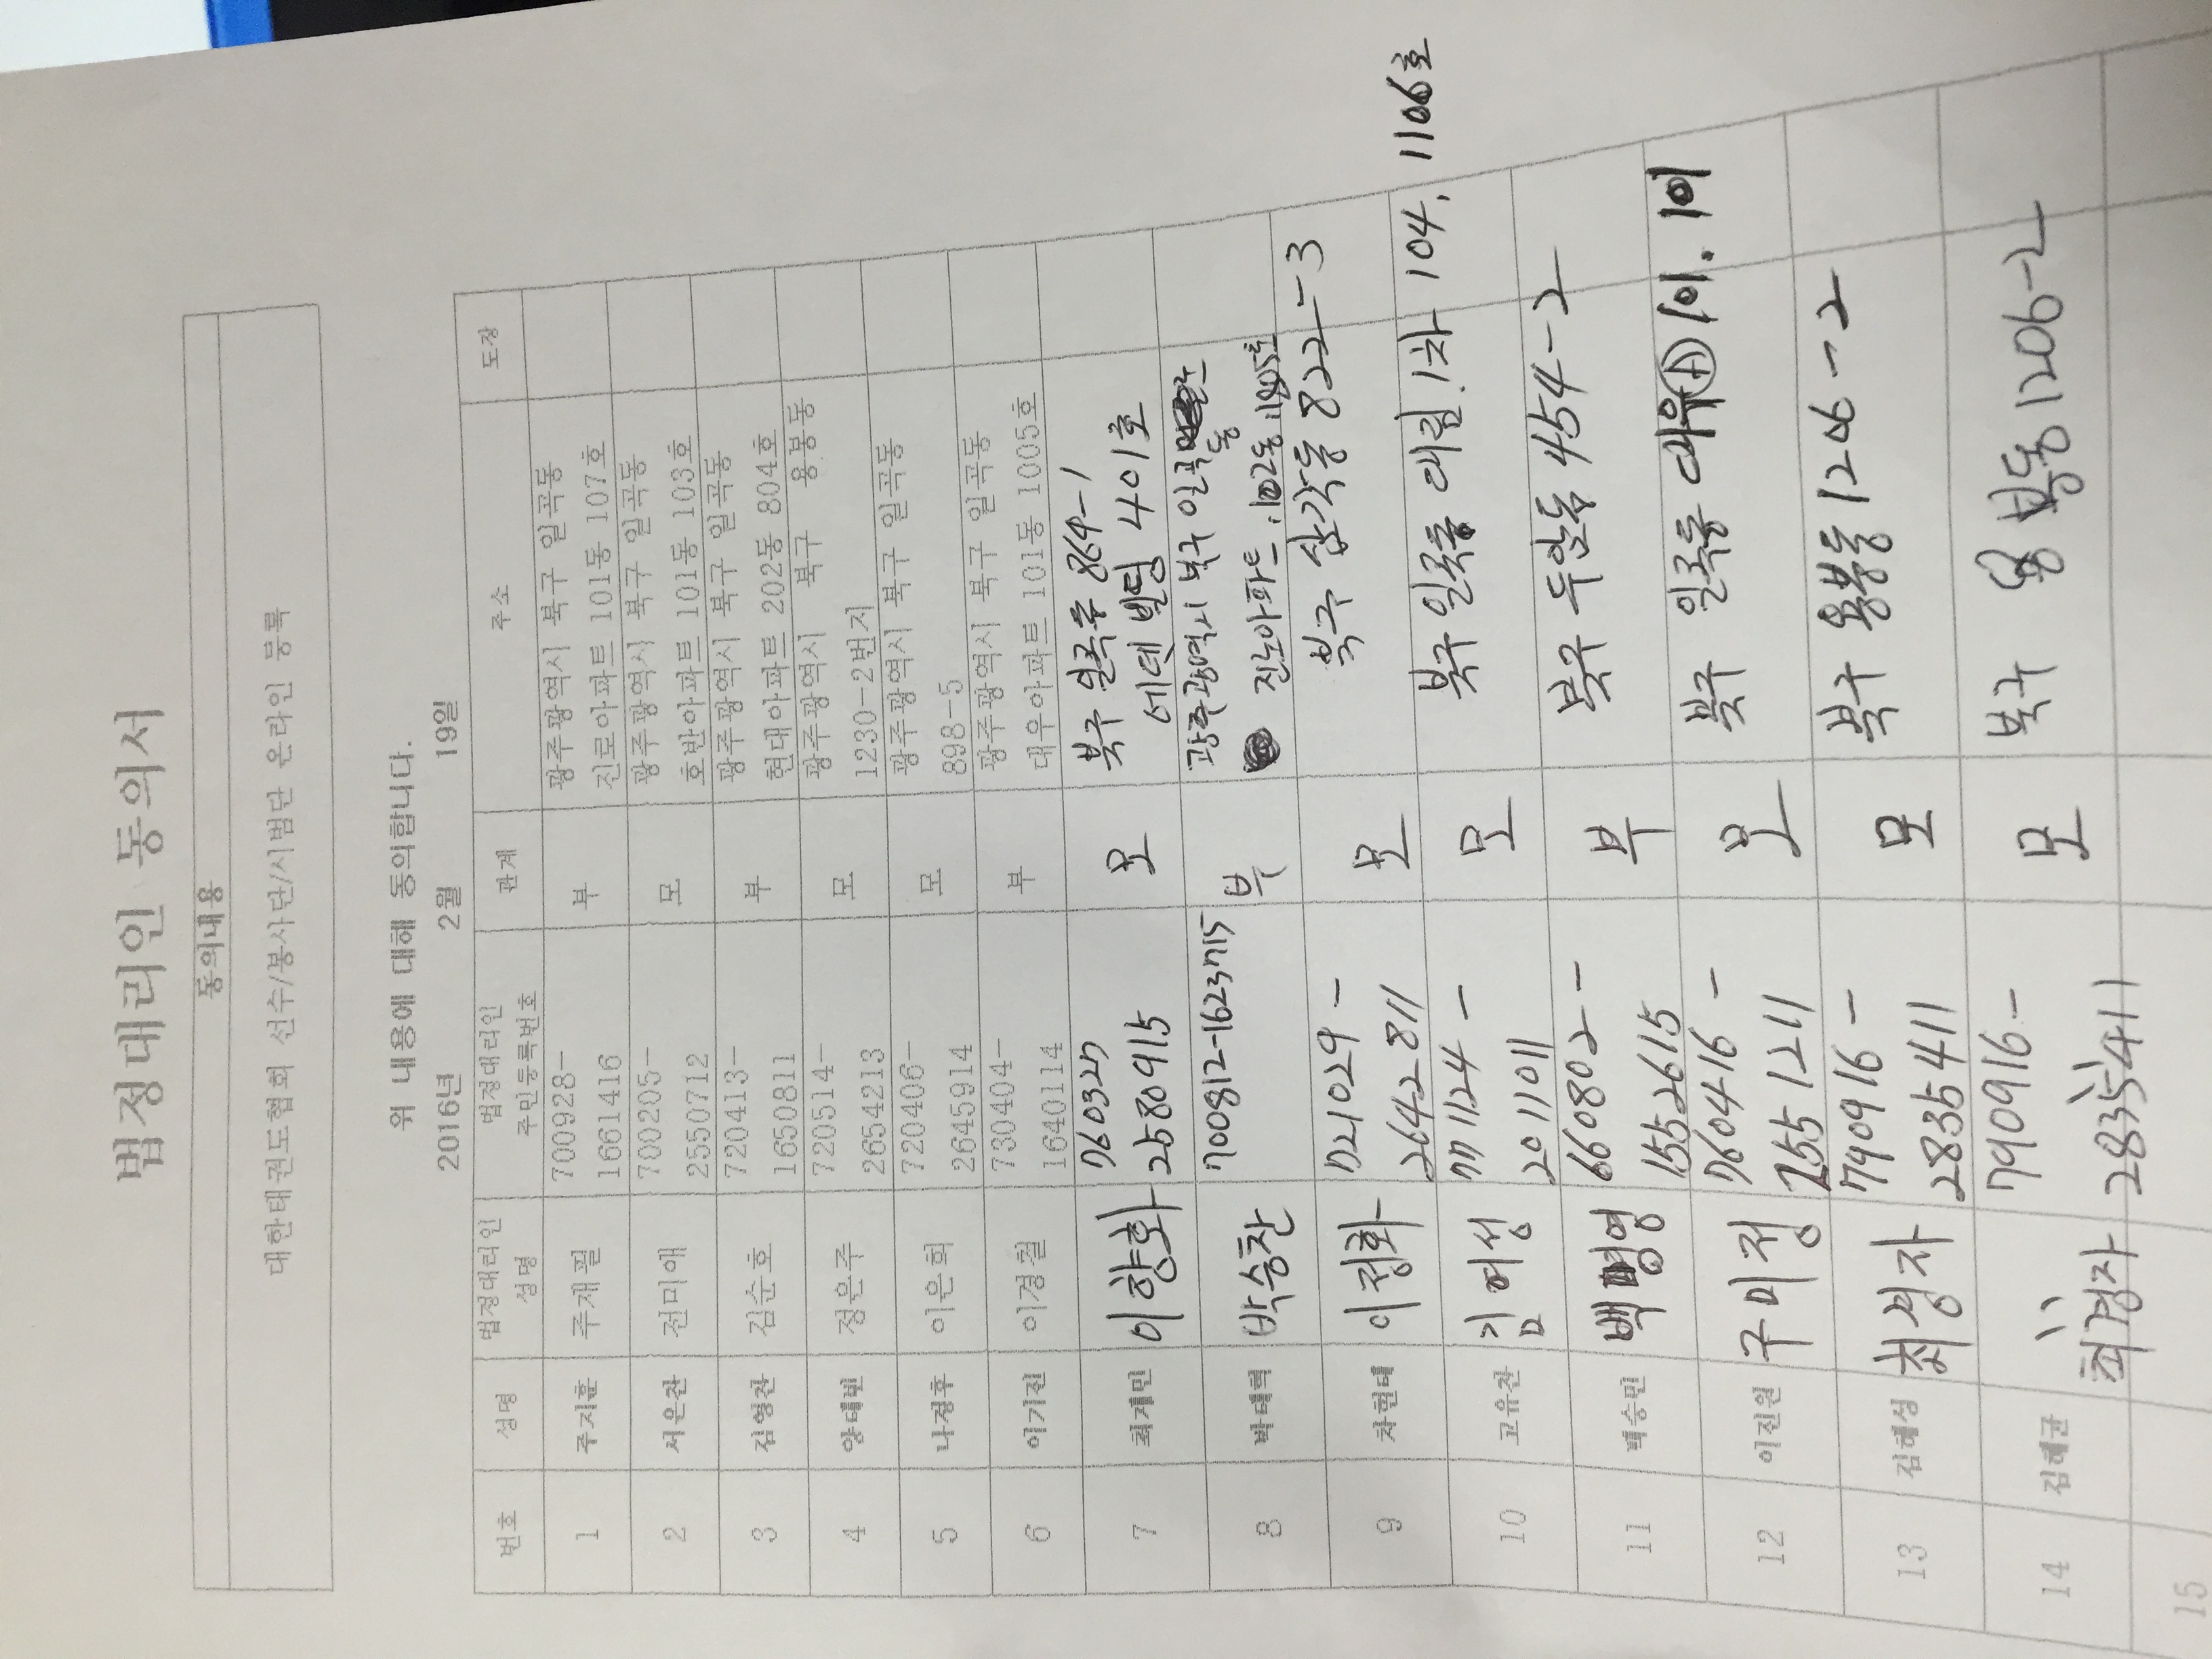 법정대리인 동의서
동의내용
대한태권도협회 선수/봉사단/시범단 온라인 등록
위 내용에 대해 동의합니다.
2016년 2월 19일
번호 성명 법정대리인 성명 법정대리인 주민등록번호 관계 주소 도장
1 주지훈 주재필 700928- 부 광주광역시 북구 일곡동
1661416 진로아파트 101동 107호
2 서은찬 전미애 700205- 모 광주광역시 북구 일곡동
2550712 호반아파트 101동 103호
3 김영찬 김순호 720413- 부 광주광역시 북구 일곡동
1650811 현대아파트 202동 804호
4 양태빈 정은주 720514- 모 광주광역시 북구 용봉동
2654213 1230-2번지
5 나정후 이은희 720406- 모 광주광역시 북구 일곡동
2645914 898-5
6 이기진 이경철 730404- 부 광주광역시 북구 일곡동
1640114 대우아파트 101동 1005호
7 최재민 이향화 760327 모 북구 일곡동 864-1
2580915 에덴빌딩 401호
8 박태혁 박승찬 700812-1623715 부 광주광역시 북구 일곡동
진로아파트 102동
9 차현태 이정화 721029- 모 북구 삼각동 822-3
2642811
10 고유찬 김여성 771124- 모 북구 일곡동 대림1차 104, 1106호
2011011
11 백승민 백명영 660802- 부 북구 두암동 454-2
1552615
12 이진원 구미정 760416- 모 북구 일곡동 대우Ⓐ 101. 101
2551211
13 김해성 최경자 790916- 모 북구 용봉동 1206-2
2835411
14 김해균 최경자 790916- 모 북구 용봉동 1206-2
2835411
15